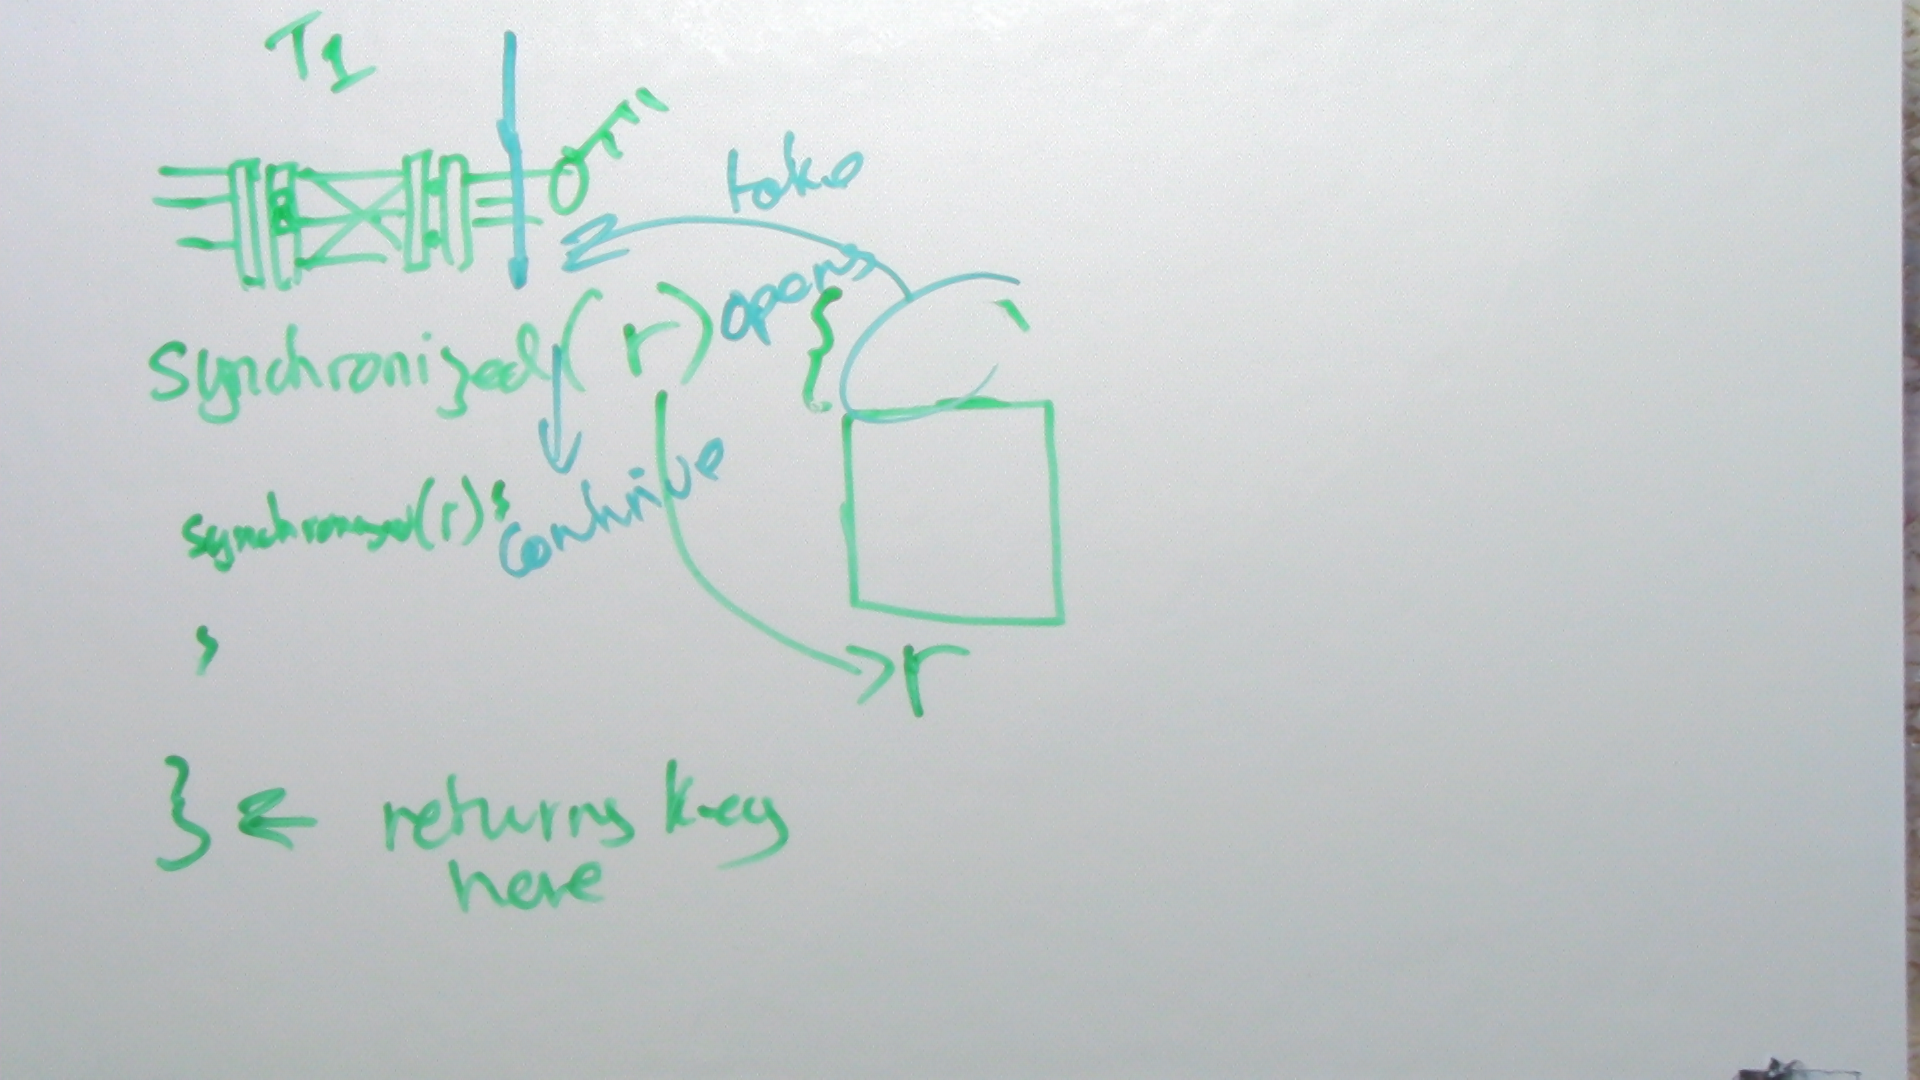 T1
take
opens
synchronized(r) {
continue
synchronized(r) {
}
r
} ← returns key
here